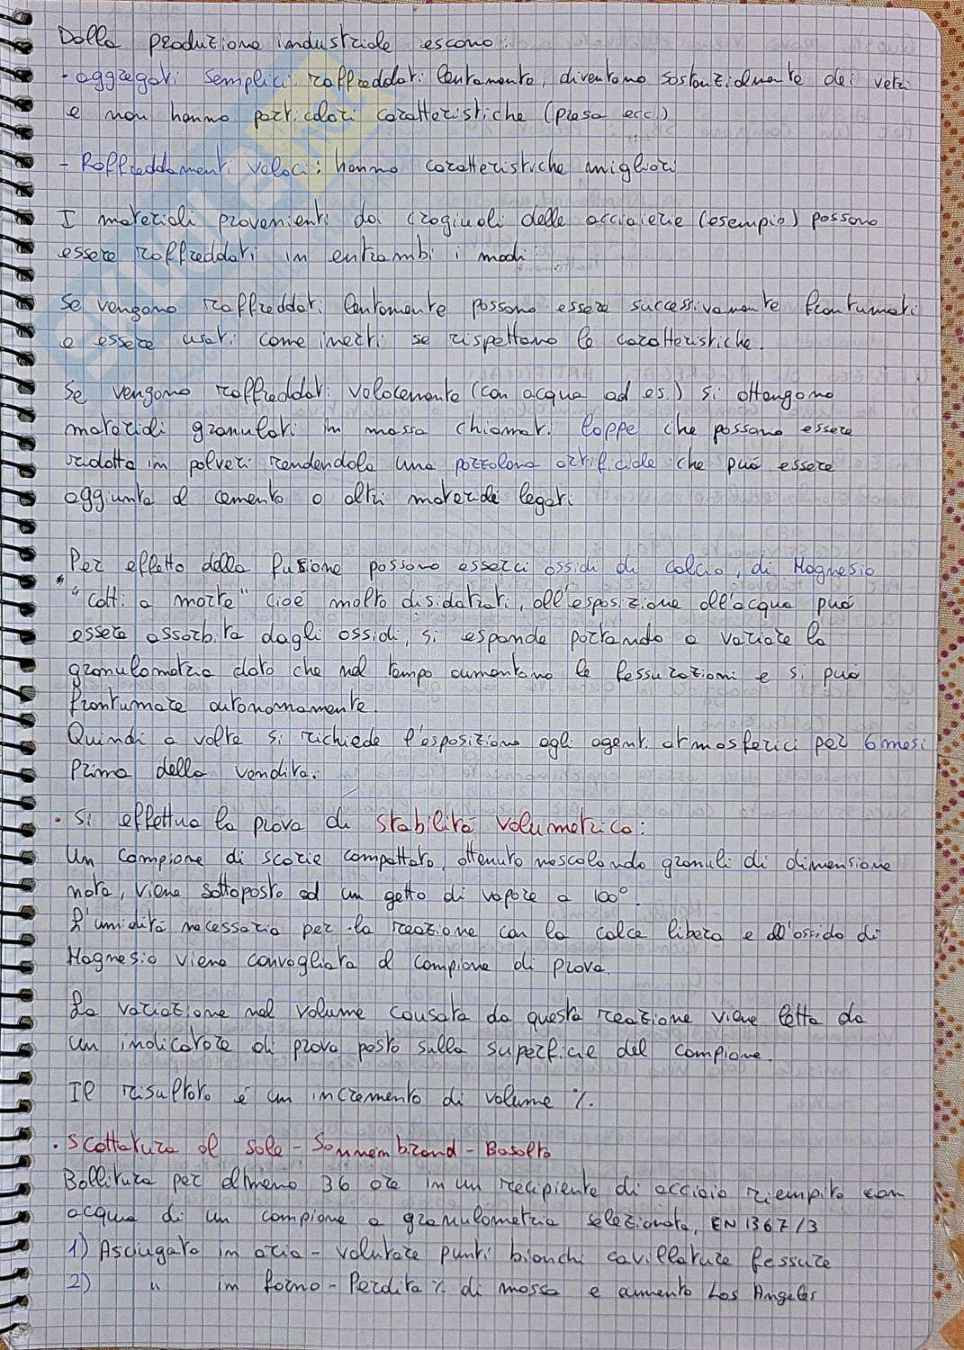 Dalla produzione industriale escono:
- aggregati semplici raffreddati lentamente, diventano sostanzialmente dei vetri
e non hanno particolari caratteristiche (presa ecc.)
- Raffreddamenti veloci: hanno caratteristiche migliori
I materiali provenienti dai crogiuoli delle acciaierie (esempio) possono
essere raffreddati in entrambi i modi
Se vengono raffreddati lentamente possono essere successivamente frantumati
e essere usati come inerti se rispettano le caratteristiche.
Se vengono raffreddati velocemente (con acqua ad es.) si ottengono
materiali granulari in massa chiamati loppe che possono essere
ridotte in polveri rendendola una pozzolana artificiale che può essere
aggiunta al cemento o altri materiali leganti
Per effetto della fusione possono esserci ossidi di calcio, di Magnesio
* "cotti a morte" cioè molto disidratati, all'esposizione all'acqua può
essere assorbita dagli ossidi, si espande portando a variare la
granulometria dato che nel tempo aumentano le fessurazioni e si può
frantumare autonomamente.
Quindi a volte si richiede l'esposizione agli agenti atmosferici per 6 mesi
Prima della vendita.
• Si effettua la prova di stabilità volumetrica:
Un campione di scorie compattato, ottenuto mescolando granuli di dimensione
nota, viene sottoposto ad un getto di vapore a 100°.
L'umidità necessaria per la reazione con la calce libera e all'ossido di
Magnesio viene convogliata al campione di prova.
La variazione nel volume causata da questa reazione viene letta da
un indicatore di prova posto sulla superficie del campione.
Il risultato è un incremento di volume %.
• Scottatura al sole - Sonnembrand - Basalto
Bollitura per almeno 36 ore in un recipiente di acciaio riempito con
acqua di un campione a granulometria selezionata, EN 1367/3
1) Asciugato in aria - valutare punti bianchi cavillature fessure
2) " in forno - Perdita % di massa e aumento Los Angeles